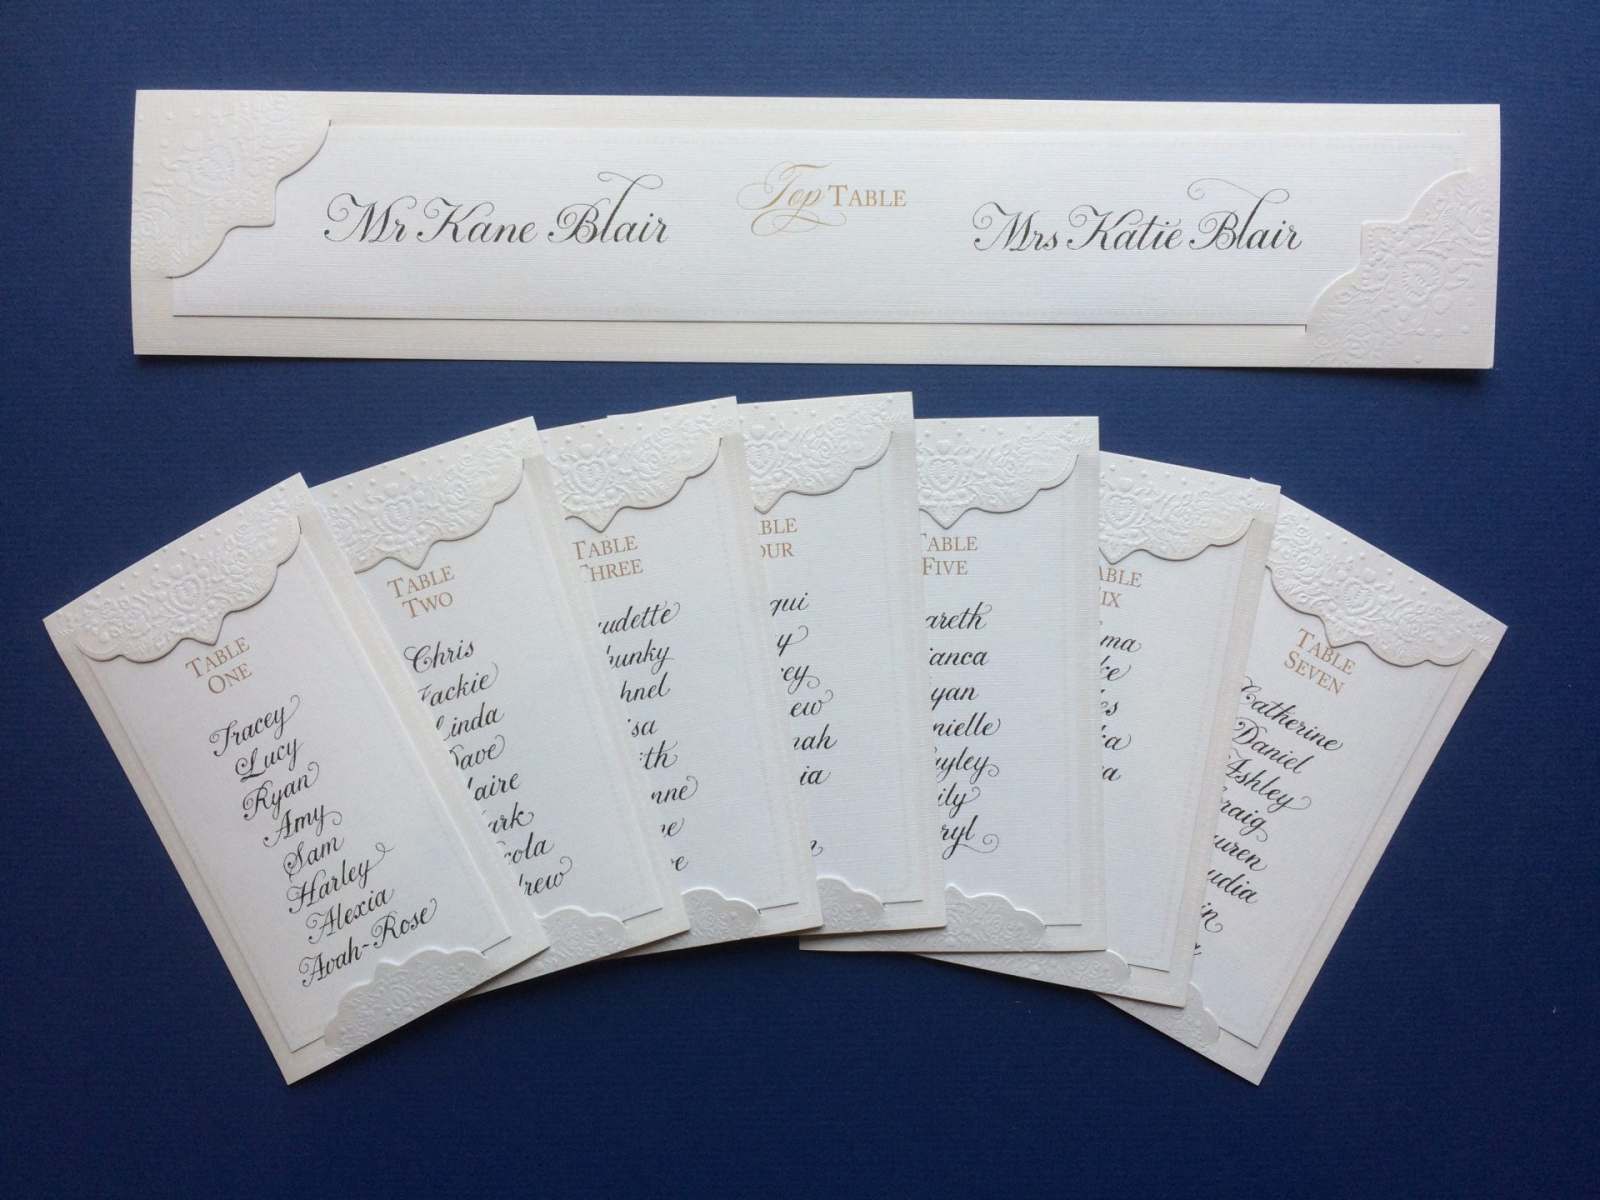 Top TABLE
Mr Kane Blair
Mrs Katie Blair
TABLE
ONE
Tracey
Lucy
Ryan
Amy
Sam
Harley
Alexia
Avah-Rose
TABLE
TWO
Chris
Jackie
Linda
Dave
laire
ark
cola
drew
TABLE
THREE
udette
hunky
hnel
isa
ith
nne
ve
BLE
OUR
qui
y
ey
ew
nah
ia
n
TABLE
FIVE
areth
ianca
yan
nielle
ayley
ily
ryl
ABLE
IX
ma
ke
es
ia
a
TABLE
SEVEN
Catherine
Daniel
Ashley
raig
uren
udia
in